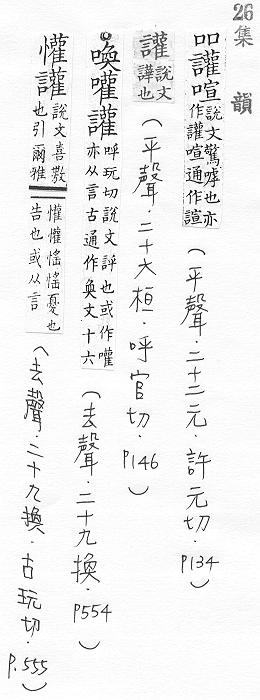 26集 韻
吅讙喧說文驚嘑也亦作讙喧通作諠(平聲.二十二元.許元切.P134)
讙說文譁也(平聲.二十六桓.呼官切.P146)
喚嚾讙呼玩切說文評也或作嚾亦从言古通作奐文十六(去聲.二十九換.P554)
懽讙說文喜𣢾也引爾雅懽懽愮愮憂也告也或从言(去聲.二十九換.古玩切.P.555)